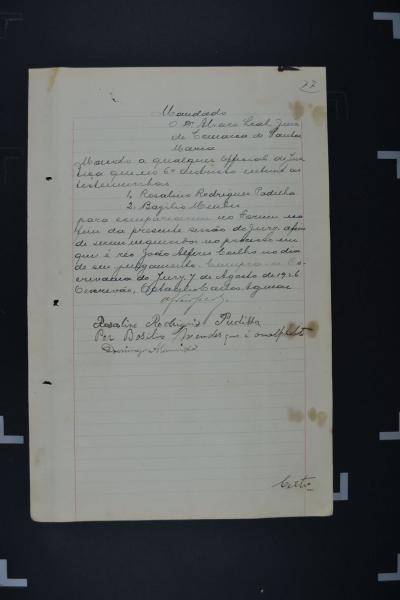 77
Mandado
O Dr. Alvaro Leal, Juiz
da Comarca de Santa
Maria
Mando a qualquer official de Jus
tiça que no 6º districto intime as
testemunhas
1. Rosalino Rodrigues Padilha
2. Bazilio Mendes
para comparecerem no Forum no
dia da presente sessão do Jury, afim
de serem inqueridos no processo em
que é réo João Alferes Coelho no dia
de seu julgamento. Cumpra-se. Es
crivania do Jury, 7 de Agosto de 1926
Escrivão, Carlos Aguiar
Rosalino Rodrigues Padilha
Por Bosilio Mendes que é analfabeto
Domingo Almeida